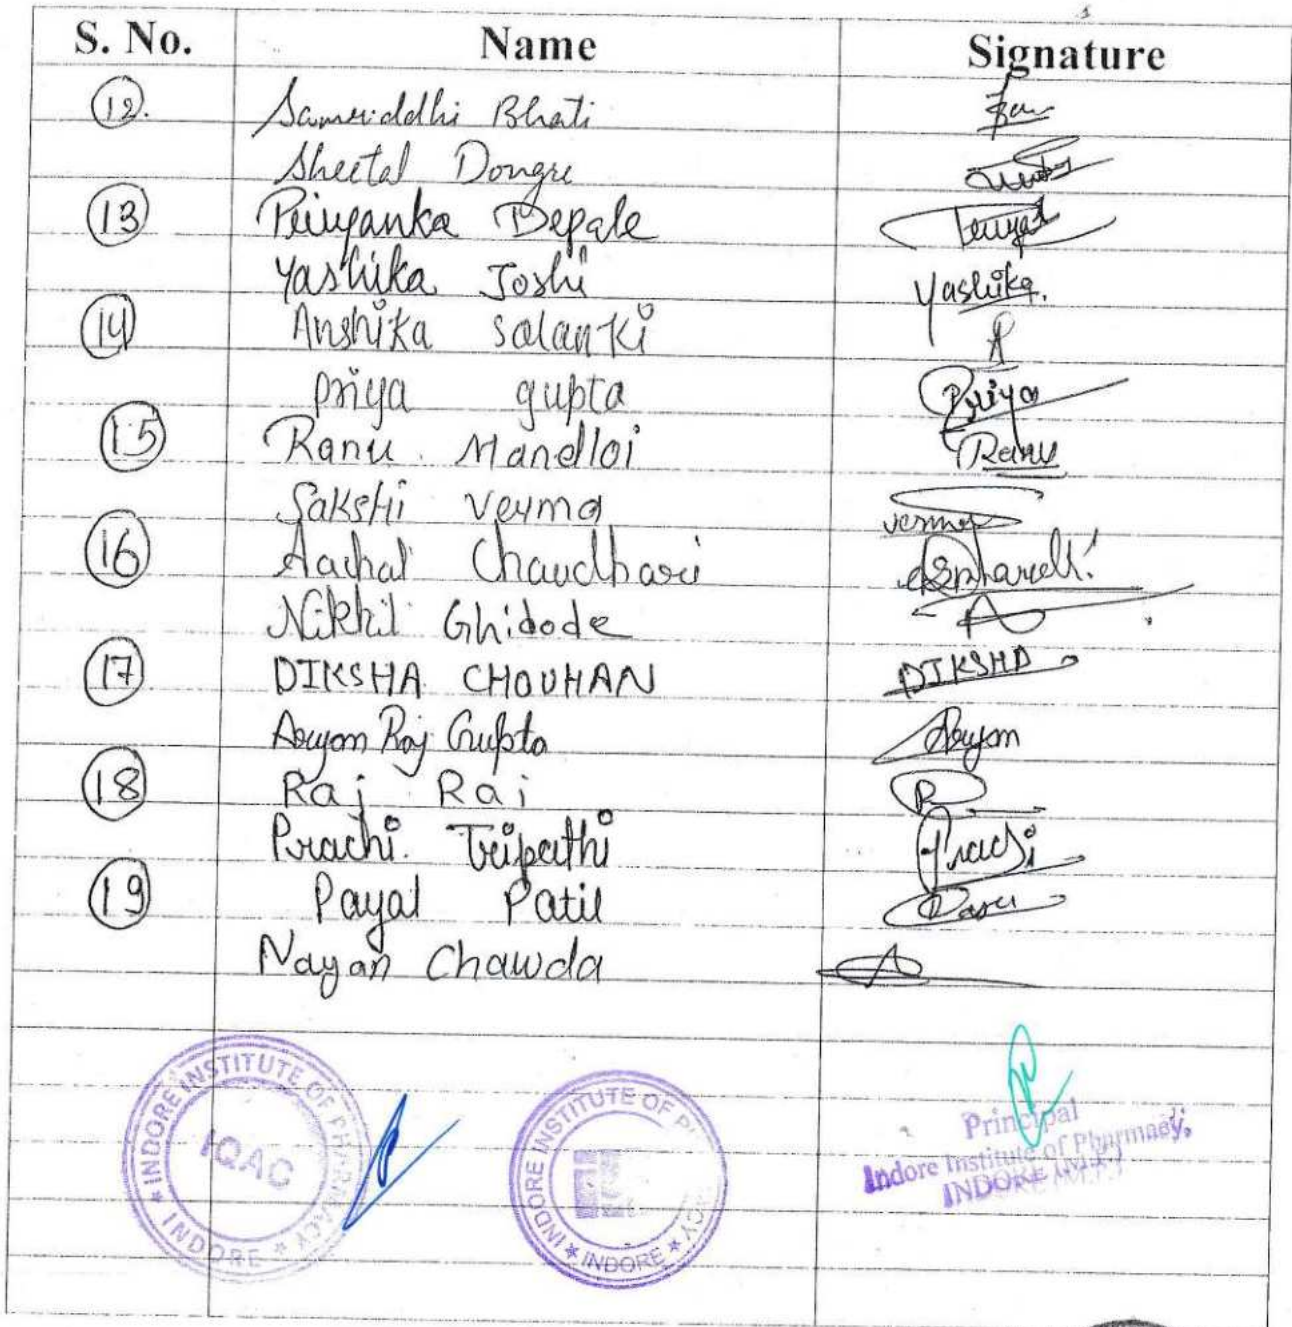 S. No. Name Signature
12. Samriddhi Bhati
Sheetal Dongre
13 Priyanka Depale
Yashika Joshi Yashika.
14 Anshika Solanki
Priya gupta Priya
15 Ranu Mandloi Ranu
Sakshi Verma Verma
16 Aachal Chaudhari
Nikhil Ghidode
17 DIKSHA CHOUHAN DIKSHA
Aryan Raj Gupta Aryan
18 Raj Rai R
Prachi Tripathi Prachi
19 Payal Patil
Nayan Chawda
INDORE INSTITUTE OF PHARMACY
IQAC
* INDORE *
INDORE INSTITUTE OF
* INDORE *
Principal
Indore Institute of Pharmacy,
INDORE (M.P.)